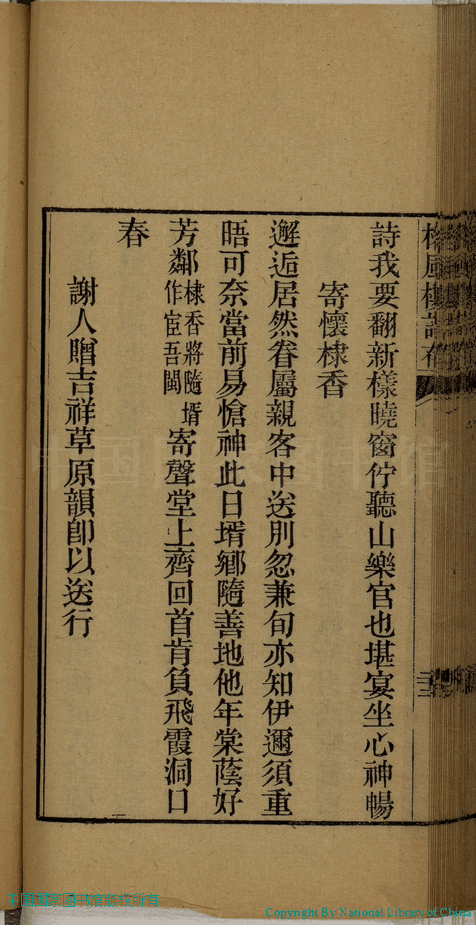 詩我要翻新樣曉窗佇聽山樂官也堪宴坐心神暢
寄懷棣香
邂逅居然眷屬親客中送別忽兼旬亦知伊邇須重
晤可奈當前易愴神此日壻鄉隨善地他年棠蔭好
芳鄰棣香將隨壻作宦吾閩寄聲堂上齊回首肯負飛霞洞口
春
謝人贈吉祥草原韻卽以送行
中國國家图书馆版权所有
Copyright By National Library of China